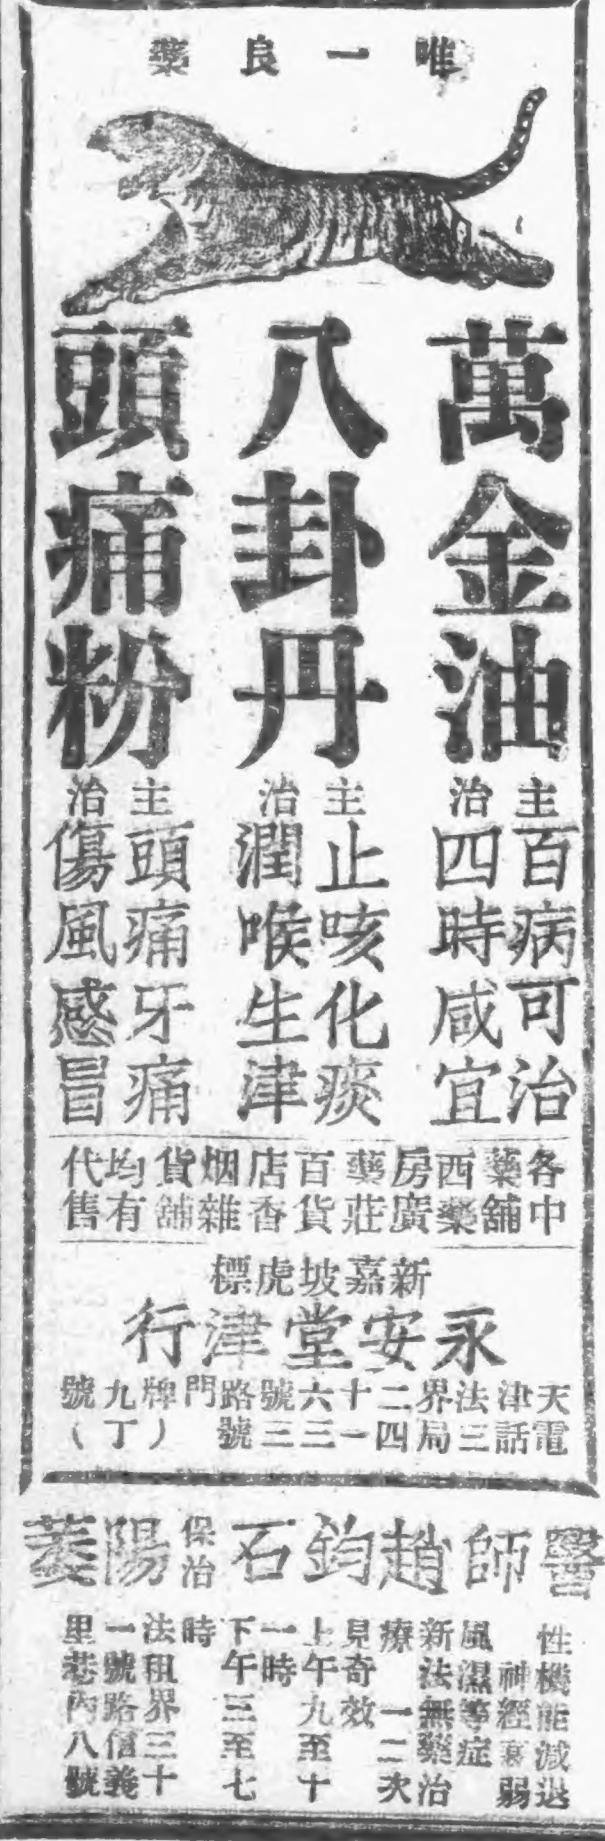 唯一良藥
萬金油
主治
百病可治
四時咸宜
八卦丹
主治
止咳化痰
潤喉生津
頭痛粉
主治
頭痛牙痛
傷風感冒
各中藥舖西藥房廣藥莊百貨店香烟雜貨舖均有代售
新嘉坡虎標
永安堂津行
天津法界二十六號路門牌九號
電話三局四一三三號（丁）
醫師趙鈞石保治陽萎
性機能減退
神經衰弱
風濕等症
新法無藥治
療 一二次
見奇效
上午九至十
一時
下午三至七
時
法租界三十
一號路信義
里巷內八號